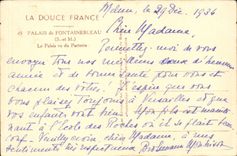 LA DOUCE FRANCE
PALAIS DE FONTAINEBLEAU
(S.-et-M.)
Le Palais vu du Parterre
Melun, le 29 Déc. 1936
Chère Madame,
Permettez-moi de vous
envoyer tous nos meilleurs vœux d'heureuse
année et de bonne santé pour vous et
chacun des vôtres. J'espère que vous
vous plaisez toujours à Versailles et que
vos enfants vont bien. Mon fils est maintenant
à l'École des Roches où il se plaît
Veuillez croire, chère Madame, à mes
sentiments